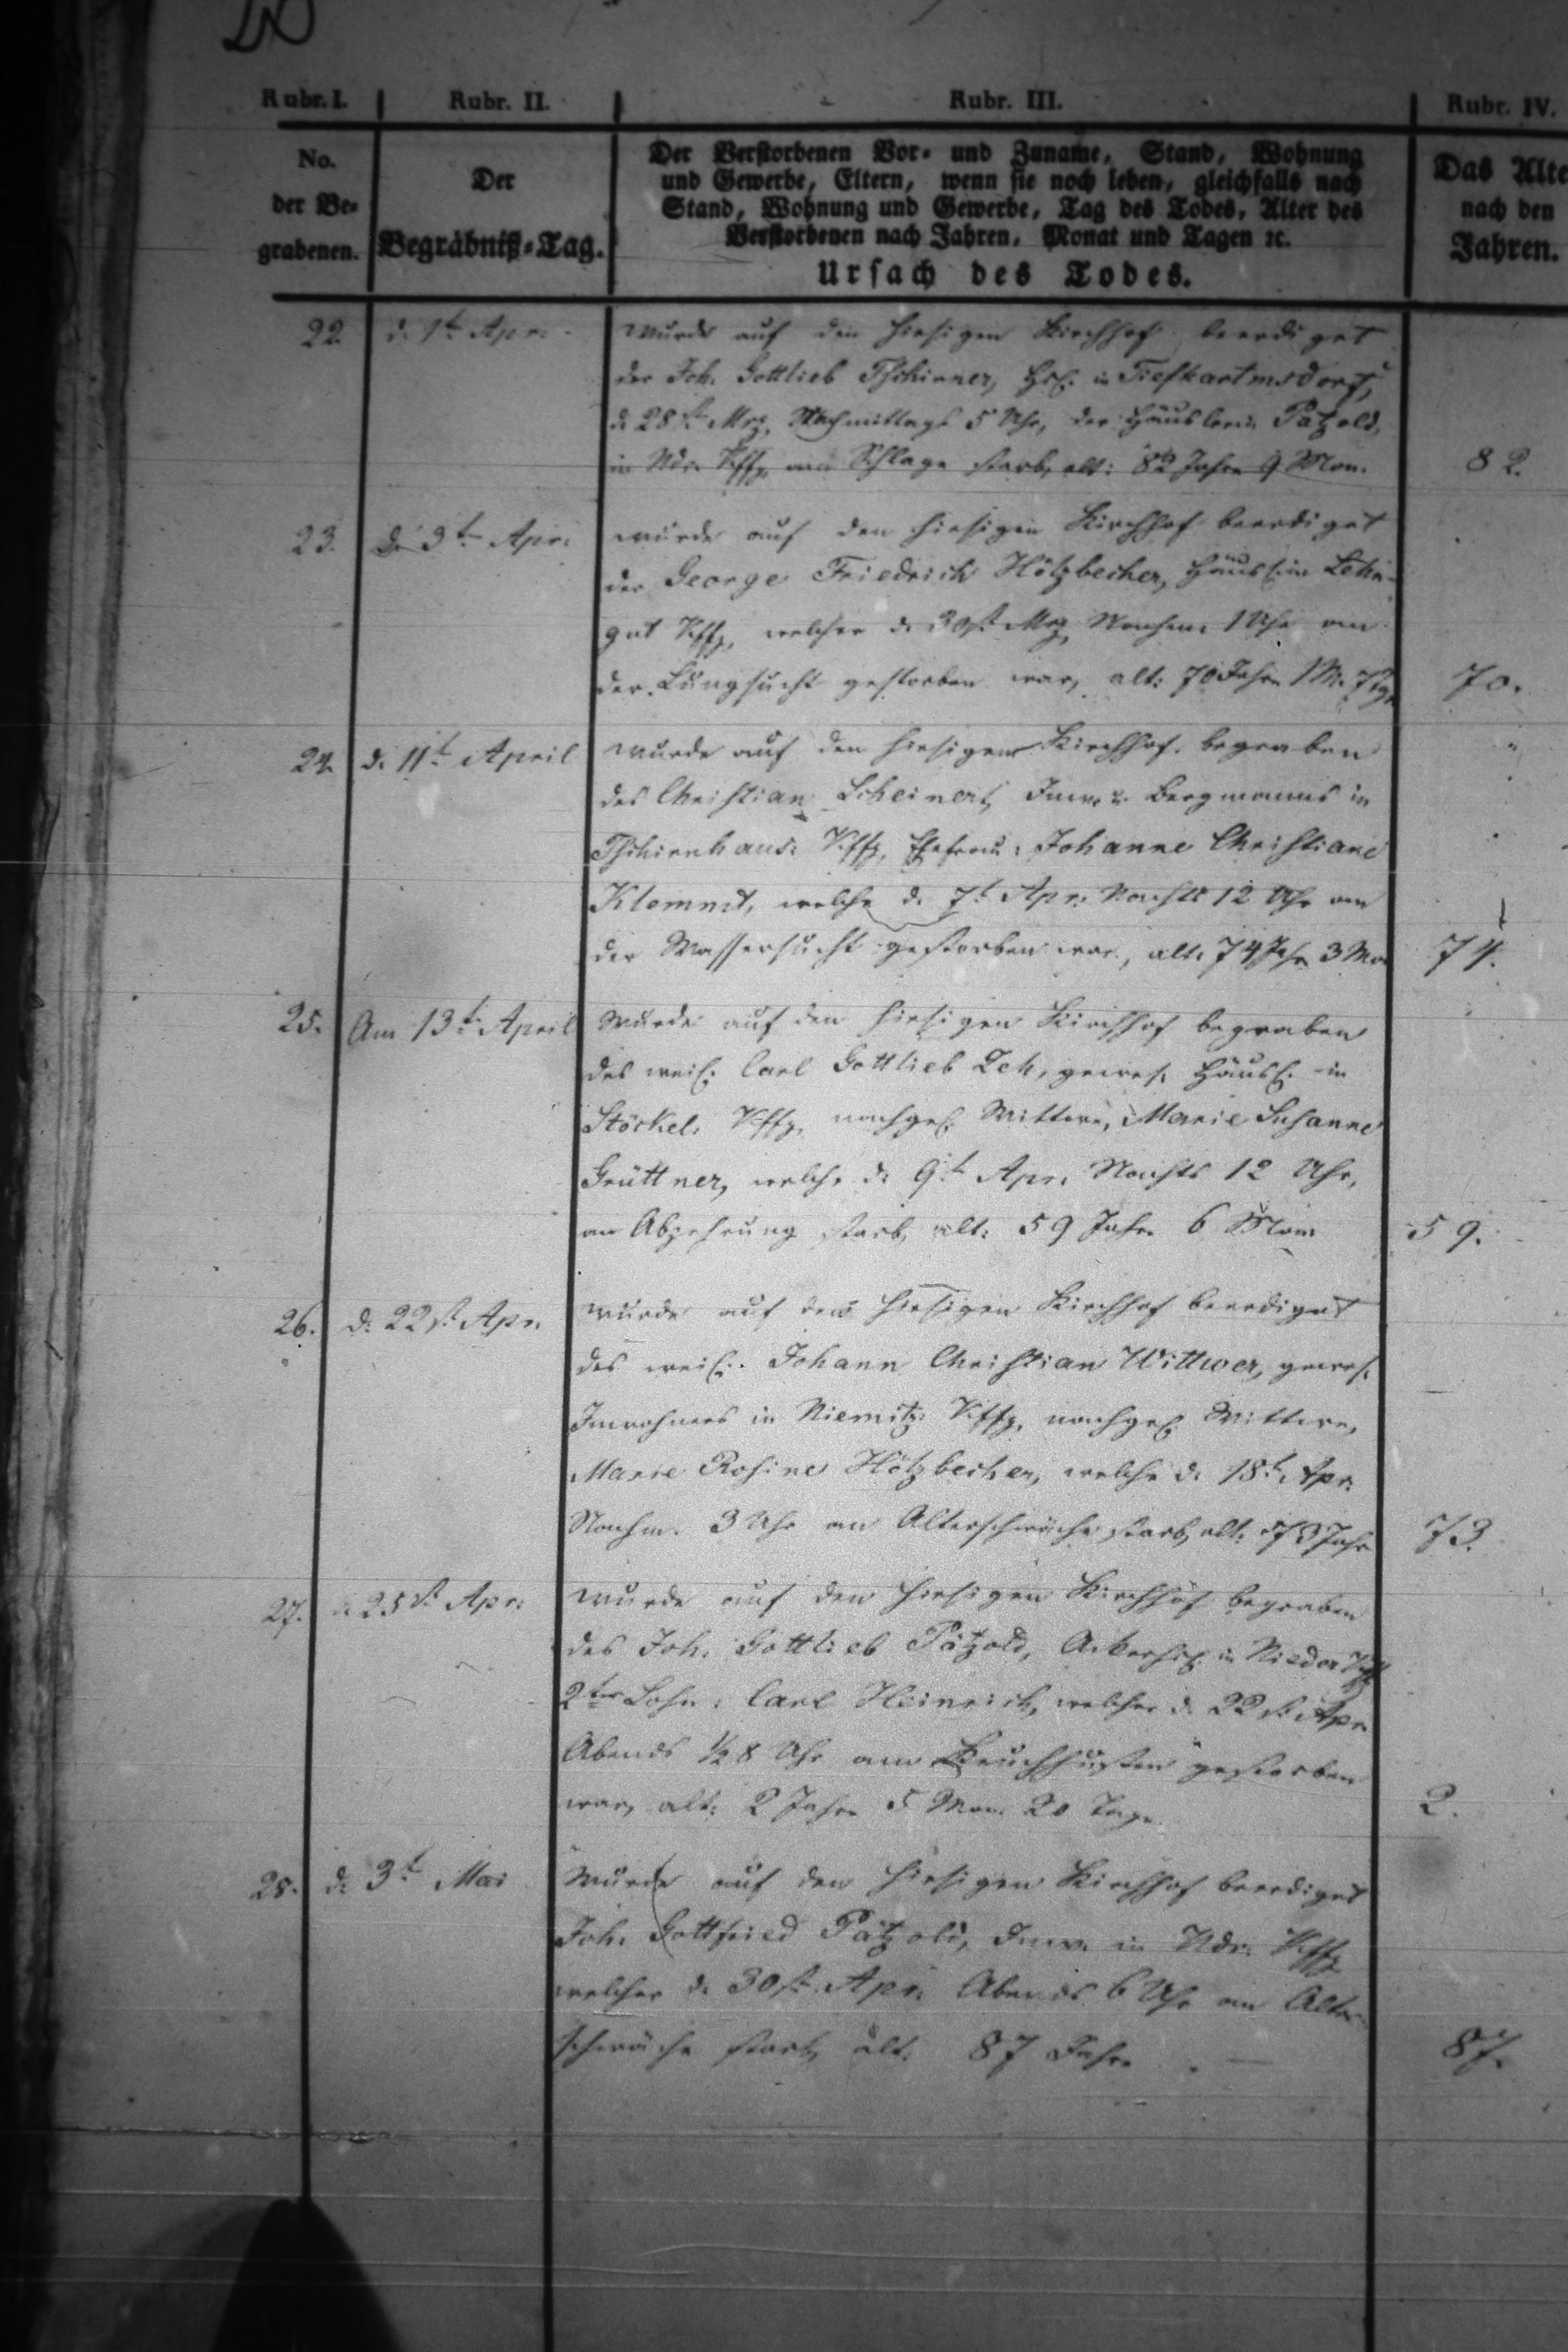 Rubr. I. Rubr. II. Rubr. III. Rubr. IV.
No. der Be- grabenen.
Der Begräbniß-Tag.
Der Verstorbenen Vor- und Zuname, Stand, Wohnung
und Gewerbe, Eltern, wenn sie noch leben, gleichfalls nach
Stand, Wohnung und Gewerbe, Tag des Todes, Alter des
Verstorbenen nach Jahren, Monat und Tagen ꝛc.
Ursach des Todes.
Das Alte
nach den
Jahren.
22. d. 1t. Apr. wurde auf den hiesigen Kirchhof beerdiget
der Joh. Gottlieb Tschirner, in Tiefhartmsdorf,
d. 28st. Mrz. Nachmittags 5 Uhr, der Häusler Pätzold,
in Ndr. Kffg. am Schlage starb, alt: 82 Jahre 9 Mon. 82.
23. d. 3t. Apr. wurde auf den hiesigen Kirchhof beerdiget
der George Friedrich Hötzbecher, Häusl. in Lehn-
gut Kffg. welcher d. 30st. Mrz. Nachm. 1 Uhr an
der Lungsucht gestorben war, alt: 70 Jahre 1 M. 7 Tg. 70.
24. d. 11t. April wurde auf den hiesigen Kirchhof begraben
des Christian Scheinert, Inw. u. Bergmanns in
Tschirnhaus: Kffg. Ehefrau: Johanne Christiane
Klemmt, welche d. 7t. Apr. Nachts 12 Uhr an
der Wassersucht gestorben war, alt: 74 Jahr 3 Mo 74.
25. Am 13t. April Wurde auf den hiesigen Kirchhof begraben
des weil. Carl Gottlieb Zeh, gewes. Häusl. in
Stöckel: Kffg. nachgel. Wittwe, Marie Susanne
Grüttner, welche d. 9t. Apr. Nachts 12 Uhr,
an Abzehrung starb, alt: 59 Jahre 6 Mon 59.
26. d. 22st. Apr. wurde auf den hiesigen Kirchhof beerdiget
des weil. Johann Christian Wittwer, gewes.
Inwohners in Niemitz: Kffg. nachgel. Wittwe,
Marie Rosine Hötzbecher, welche d. 18t. Apr.
Nachm. 3 Uhr an Altersschwäche starb, alt: 73 Jahr 73.
27. d. 25st. Apr. wurde auf den hiesigen Kirchhof begraben
des Joh. Gottlieb Pätzold, Ackerhsl. in Nieder Kffg
2ter Sohn: Carl Heinrich, welcher d. 22st. Apr.
Abends ½ 8 Uhr am Keuchhusten gestorben
war, alt: 2 Jahre 5 Mon. 20 Tage. 2.
28. d. 3t. Mai Wurde auf den hiesigen Kirchhof beerdiget
Joh. Gottfried Pätzold, Inw. in Ndr. Kffg
welcher d. 30st. Apr. Abends 6 Uhr an Alter-
schwäche starb, alt: 87 Jahre. 87.